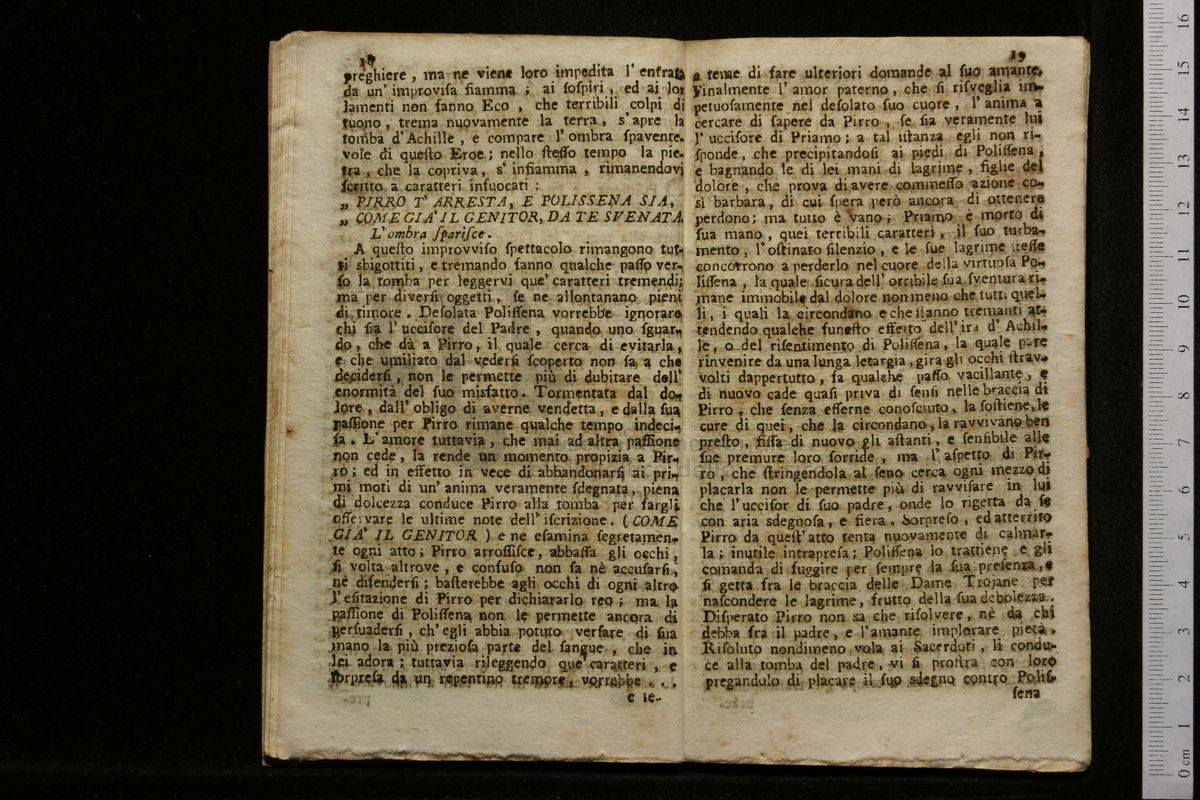 18
preghiere, ma ne viene loro impedita l' entrata
da un' improvisa fiamma; ai sospiri, ed ai lor
lamenti non fanno Eco, che terribili colpi di
tuono, trema nuovamente la terra, s'apre la
tomba d'Achille, e compare l'ombra spavente-
vole di questo Eroe; nello stesso tempo la pie-
tra, che la copriva, s'infiamma, rimanendovi
scritto a caratteri infuocati:
„ PIRRO T' ARRESTA, E POLISSENA SIA,
„ COME GIA' IL GENITOR, DA TE SVENATA.
L'ombra sparisce.
A questo improvviso spettacolo rimangono tut-
ti sbigottiti, e tremando fanno qualche passo ver-
so la tomba per leggervi que' caratteri tremendi;
ma per diversi oggetti, se ne allontanano pieni
di timore. Desolata Polissena vorrebbe ignorare
chi sia l'uccisore del Padre, quando uno sguar-
do, che dà a Pirro, il quale cerca di evitarla,
e che umiliato dal vedersi scoperto non sa a che
decidersi, non le permette più di dubitare dell'
enormità del suo misfatto. Tormentata dal do-
lore, dall' obligo di averne vendetta, e dalla sua
passione per Pirro rimane qualche tempo indeci-
sa. L'amore tuttavia, che mai ad altra passione
non cede, la rende un momento propizia a Pir-
ro; ed in effetto in vece di abbandonarsi ai pri-
mi moti di un' anima veramente sdegnata, piena
di dolcezza conduce Pirro alla tomba per fargli
osservare le ultime note dell' iscrizione. (COME
GIA' IL GENITOR) e ne esamina segretamen-
te ogni atto; Pirro arrossisce, abbassa gli occhi,
si volta altrove, e confuso non sa nè accusarsi,
nè difendersi; basterebbe agli occhi di ogni altro
l'esitazione di Pirro per dichiararlo reo; ma la
passione di Polissena non le permette ancora di
persuadersi, ch' egli abbia potuto versare di sua
mano la più preziosa parte del sangue, che in
lei adora; tuttavia rileggendo que' caratteri, e
sorpresa da un repentino tremore, vorrebbe . . .
e te-
19
e teme di fare ulteriori domande al suo amante.
Finalmente l'amor paterno, che si risveglia im-
petuosamente nel desolato suo cuore, l'anima a
cercare di sapere da Pirro, se sia veramente lui
l'uccisore di Priamo; a tal istanza egli non ri-
sponde, che precipitandosi ai piedi di Polissena,
e bagnando le di lei mani di lagrime, figlie del
dolore, che prova di avere commesso azione co-
sì barbara, di cui spera però ancora di ottenere
perdono; ma tutto è vano; Priamo è morto di
sua mano, quei terribili caratteri, il suo turba-
mento, l'ostinato silenzio, e le sue lagrime istesse
concorrono a perderlo nel cuore della virtuosa Po-
lissena, la quale sicura dell' orribile sua sventura ri-
mane immobile dal dolore non meno che tutti quel-
li, i quali la circondano e che stanno tremanti at-
tendendo qualche funesto effetto dell'ira d' Achil-
le, o del risentimento di Polissena, la quale pare
rinvenire da una lunga letargia, gira gli occhi strav-
volti dappertutto, fa qualche passo vacillante, e
di nuovo cade quasi priva di sensi nelle braccia di
Pirro, che senza esserne conosciuto, la sostiene, le
cure di quei, che la circondano, la ravvivano ben
presto, fissa di nuovo gli astanti, e sensibile alle
sue premure loro sorride, ma l'aspetto di Pir-
ro, che stringendola al seno cerca ogni mezzo di
placarla non le permette più di ravvisare in lui
che l'uccisor di suo padre, onde lo rigetta da se
con aria sdegnosa, e fiera. Sorpreso, ed atterrito
Pirro da quest'atto tenta nuovamente di calmar-
la; inutile intrapresa; Polissena lo trattiene e gli
comanda di fuggire per sempre la sua presenza, e
si getta fra le braccia delle Dame Trojane per
nascondere le lagrime, frutto della sua debolezza.
Disperato Pirro non sa che risolvere, nè da chi
debba fra il padre, e l'amante implorare pietà.
Risoluto nondimeno vola ai Sacerdoti, li condu-
ce alla tomba del padre, vi si prostra con loro
pregandolo di placare il suo sdegno contro Polis-
sena